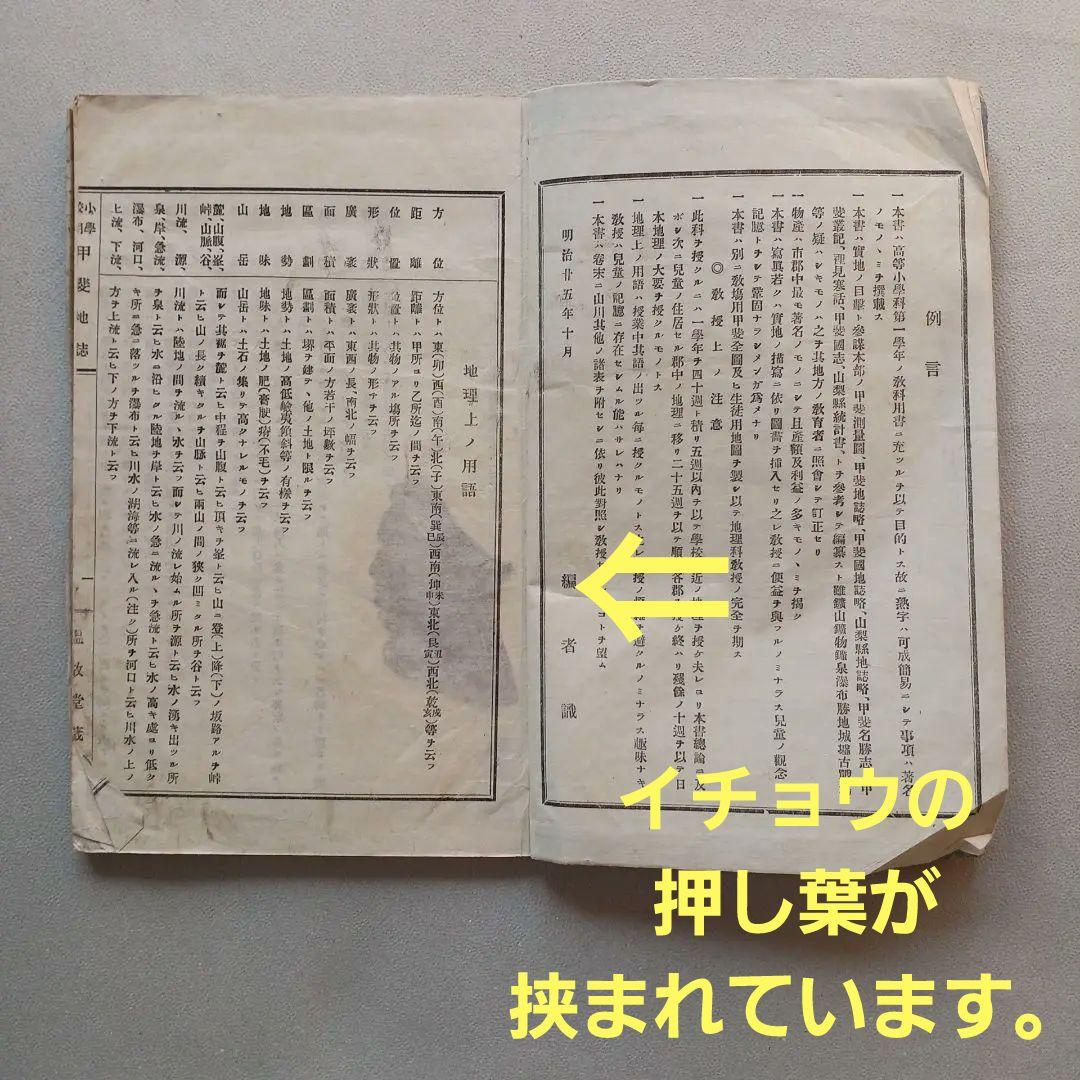 例言
一本書ハ高等小學科第一學年ノ教科用書ニ充ツルヲ以テ目的トス故ニ熟字ハ可成簡易ニシテ事項ハ著名
ノモノノミヲ撰載ス
一本書ハ實地ノ目擊ト參謀本部ノ甲斐測量圖、甲斐地誌略、甲斐國地誌略、山梨縣地誌略、甲斐名勝志、甲
斐叢記、裡見寒話、甲斐國志、山梨縣統計書、トヲ參考シテ編纂スト雖鑛山鑛物鑛泉瀑布勝地城墟古戰場
等ノ疑ハシキモノハ之ヲ其地方ノ敎育者ニ照會シテ訂正セリ
物產ハ市郡中最モ著名ノモノニシテ且產額及利益ノ多キモノノミヲ揭シ
一本書ハ寫眞若クハ實地ノ描寫ニ依リ圖畵ヲ挿入セリ之レ敎授ニ便益ヲ與フルノミナラス兒童ノ觀念
記臆ヲシテ鞏固ナラシメンガ爲メナリ
一本書ハ別ニ敎塲用甲斐全圖及ヒ生徒用地圖ヲ製シ以テ地理科敎授ノ完全ヲ期ス
◎敎授上ノ注意
一此科ヲ授クルニハ一學年ヲ四十週ト積リ五週以內ヲ以テ學校近
ボシ次ニ兒童ノ住居セル郡中ノ地理ニ移リ二十五週ヲ以テ順
終ハリ殘餘ノ十週ヲ以テ日
本地理ノ大要ヲ授クルモノトス
一地理上ノ用語ハ授業中其語ノ出ツル每ニ授クルモノトス
避クルノミナラス趣味ナキ
敎授ハ兒童ノ記臆ニ存在セシムル能ハサレハナリ
一本書ハ卷末ニ山川其他ノ諸表ヲ附セシニ依リ彼此對照シ敎授
コヲ望ム
明治廿五年十月
編者識
地理上ノ用語
方位 方位トハ東(卯)西(酉)南(午)北(子)東南(巽辰巳)西南(坤未申)東北(艮丑寅)西北(乾戌亥)等ヲ云フ
距離 距離トハ甲所ヨリ乙所迄ノ間ヲ云フ
位置 位置トハ其物ノアル塲所ヲ云フ
形狀 形狀トハ其物ノ形ヲ云フ
廣袤 廣袤トハ東西ノ長、南北ノ幅ヲ云フ
面積 面積トハ平面ノ方若干ノ坪數ヲ云フ
區劃 區劃トハ堺ヲ建テ、他ノ土地ト限ルヲ云フ
地勢 地勢トハ土地ノ高低嶮夷傾斜等ノ有樣ヲ云フ
地味 地味トハ土地ノ肥(膏腴)瘠(不毛)ヲ云フ
山岳 山岳トハ土石ノ集リテ高クナレルモノヲ云フ
麓、山腹、峯、 而シテ其裾ヲ麓ト云ヒ中程ヲ山腹ト云ヒ頂キヲ峯ト云ヒ山ニ登(上)降(下)ノ坂路アルヲ峠
峠、山脈、谷、 ト云ヒ山ノ長ク續キタルヲ山脈ト云ヒ兩山ノ間ノ狹ク凹ミタル所ヲ谷ト云フ
川流、源、 川流トハ陸地ノ間ヲ流ルヽ水ヲ云フ而シテ川ノ流レ始ムル所ヲ源ト云ヒ水ノ湧キ出ツル所
泉、岸、急流、 ヲ泉ト云ヒ水ニ沿ヒタル陸地ヲ岸ト云ヒ水ノ急ニ流ルヽヲ急流ト云ヒ水ノ高キ處ヨリ低シ
瀑布、河口、 キ所ニ急ニ落ツルヲ瀑布ト云ヒ川水ノ湖海等ニ流レ入ル(注ク)所ヲ河口ト云ヒ川水ノ上ノ
上流、下流、 方ヲ上流ト云ヒ下ノ方ヲ下流ト云フ
小學校用甲斐地誌
一
溫故堂藏
イチョウの
押し葉が
挟まれています。